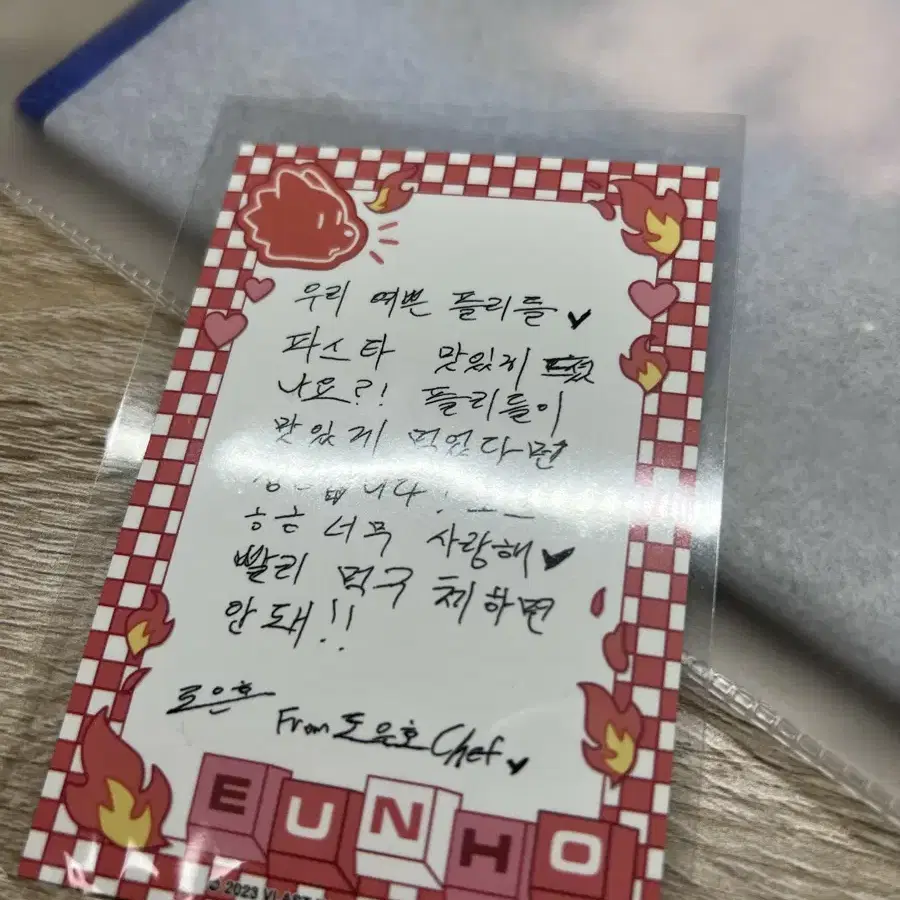 우리 예쁜 플리들
파스타 맛있게 드셨
나요?! 플리들이
맛있게 먹었다면
ㅎㅎ 너무 사랑해
빨리 먹구 체하면
안돼!!
도은호
From 도은호 Chef
EUNHO
© 2023